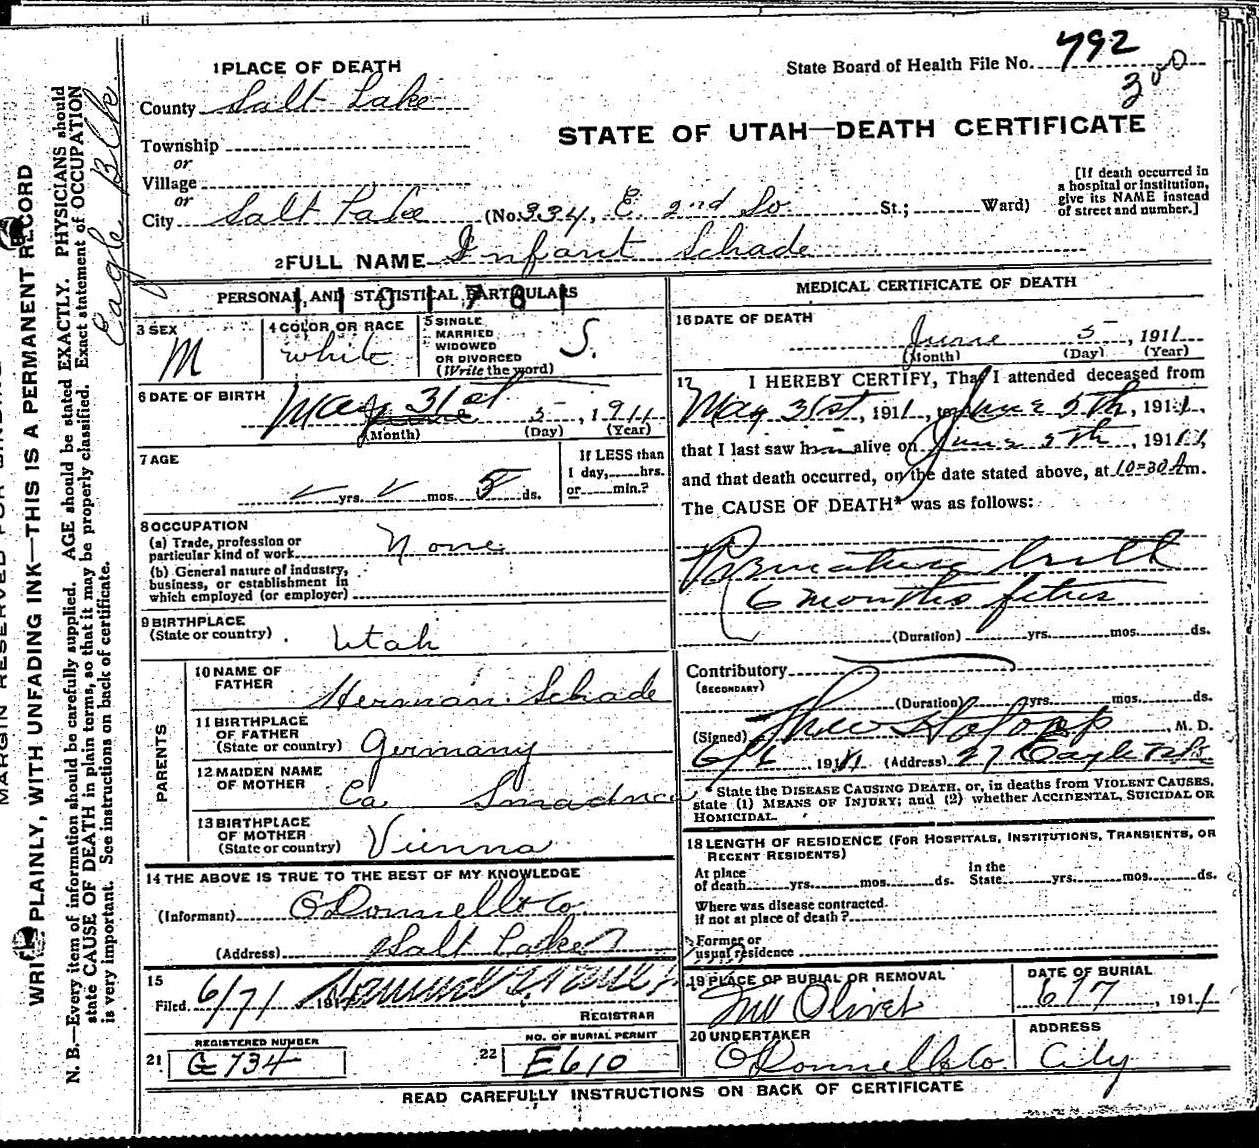 State Board of Health File No. 792
300
1 PLACE OF DEATH
County Salt Lake
STATE OF UTAH—DEATH CERTIFICATE
Township
or
Village
or
City Salt Lake (No. 334, E. 2nd So. St.; Ward)
[If death occurred in
a hospital or institution,
give its NAME instead
of street and number.]
2 FULL NAME Infant Schade
PERSONAL AND STATISTICAL PARTICULARS
3 SEX
M
4 COLOR OR RACE
white
5 SINGLE
MARRIED
WIDOWED
OR DIVORCED
(Write the word)
S.
6 DATE OF BIRTH
May 31st 5, 1911
(Month) (Day) (Year)
7 AGE
yrs. mos. 5 ds.
If LESS than
1 day, hrs.
or min.?
8 OCCUPATION
(a) Trade, profession or
particular kind of work None
(b) General nature of industry,
business, or establishment in
which employed (or employer)
9 BIRTHPLACE
(State or country) Utah
PARENTS
10 NAME OF
FATHER Herman Schade
11 BIRTHPLACE
OF FATHER
(State or country) Germany
12 MAIDEN NAME
OF MOTHER
13 BIRTHPLACE
OF MOTHER
(State or country) Vienna
14 THE ABOVE IS TRUE TO THE BEST OF MY KNOWLEDGE
(Informant) O'Donnell & Co
(Address) Salt Lake
15
Filed 6/7/ 191
REGISTRAR
REGISTERED NUMBER
21 G 734
NO. OF BURIAL PERMIT
22 E610
MEDICAL CERTIFICATE OF DEATH
16 DATE OF DEATH
June 5, 1911
(Month) (Day) (Year)
17 I HEREBY CERTIFY, That I attended deceased from
May 31st, 1911, to June 5th, 1911,
that I last saw him alive on June 5th, 1911,
and that death occurred, on the date stated above, at 10=30 A m.
The CAUSE OF DEATH* was as follows:
Premature birth
6 months fetus
(Duration) yrs. mos. ds.
Contributory
(SECONDARY)
(Duration) yrs. mos. ds.
(Signed) M. D.
1911 (Address) 27 Eagle Blk
*State the DISEASE CAUSING DEATH, or, in deaths from VIOLENT CAUSES,
state (1) MEANS OF INJURY; and (2) whether ACCIDENTAL, SUICIDAL OR
HOMICIDAL.
18 LENGTH OF RESIDENCE (FOR HOSPITALS, INSTITUTIONS, TRANSIENTS, OR
RECENT RESIDENTS)
At place
of death yrs. mos. ds.
In the
State yrs. mos. ds.
Where was disease contracted.
if not at place of death?
Former or
usual residence
19 PLACE OF BURIAL OR REMOVAL
Mt Olivet
DATE OF BURIAL
6/7, 1911
20 UNDERTAKER
O'Donnell & Co.
ADDRESS
City
READ CAREFULLY INSTRUCTIONS ON BACK OF CERTIFICATE
MARGIN RESERVED FOR BINDING
WRITE PLAINLY, WITH UNFADING INK—THIS IS A PERMANENT RECORD
N. B.—Every item of information should be carefully supplied. AGE should be stated EXACTLY. PHYSICIANS should
state CAUSE OF DEATH in plain terms, so that it may be properly classified. Exact statement of OCCUPATION
is very important. See instructions on back of certificate.
Eagle Blk.